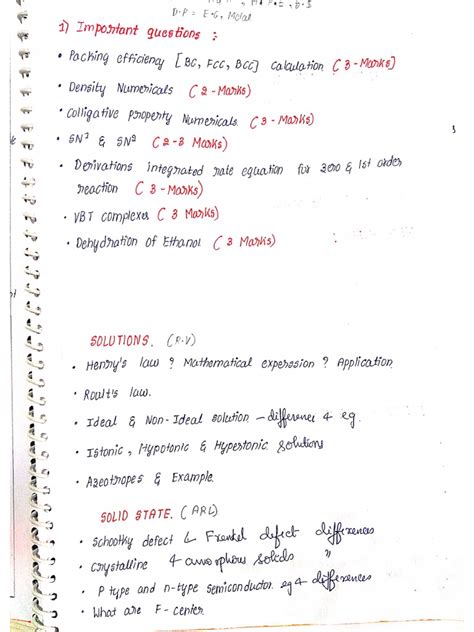 D.P = E.G, Metal
1) Important questions :
• Packing efficiency [BC, FCC, BCC] calculation (3-Marks]
• Density Numericals (2-Marks)
• Colligative property Numericals (3-Marks)
• SN¹ & SN² (2-3 Marks)
• Derivations integrated rate equation for zero & 1st order
reaction (3-Marks)
• VBT complexes (3 Marks)
• Dehydration of Ethanol (3 Marks)
SOLUTIONS. (P.V)
• Henry's law ? Mathematical experssion ? Application
• Roult's law.
• Ideal & Non-Ideal solution – difference & eg.
• Istonic, Hypotonic & Hypertonic Solutions
• Azeotropes & Example.
SOLID STATE. (ARL)
• Schottky defect & Frenkel defect differences
• Crystalline & amorphous solids "
• P type and n-type semiconductor. eg & differences
• What are F-center.